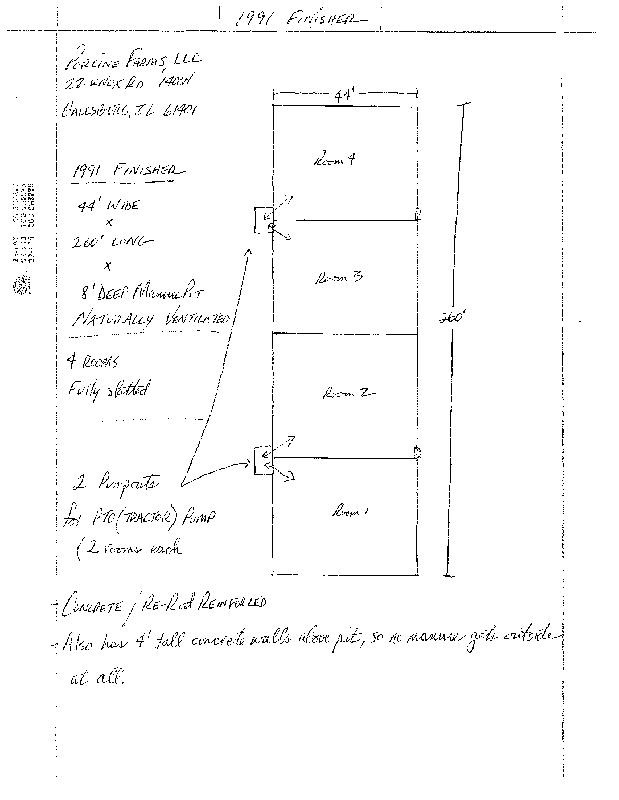 1991 FINISHER
PORCINE FARMS, LLC
22 KNOX RD 1400N
GALESBURG, IL 61401
44'
1991 FINISHER
44' WIDE
x
260' LONG
x
8' DEEP MANURE PIT
NATURALLY VENTILATED
4 ROOMS
Fully slatted
2 Pumpouts
for PTO (TRACTOR) PUMP
(2 rooms each
Room 4
Room 3
Room 2
Room 1
260'
- CONCRETE / RE-Rod REINFORCED
- Also has 4' tall concrete walls above pit, so no manure gets outside
at all.